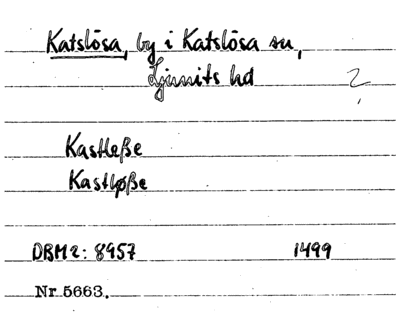 Katslösa, by i Katslösa sn,
Ljunits hd
?
Kastleße
Kastløße
DBM2: 8957 1499
Nr 5663.